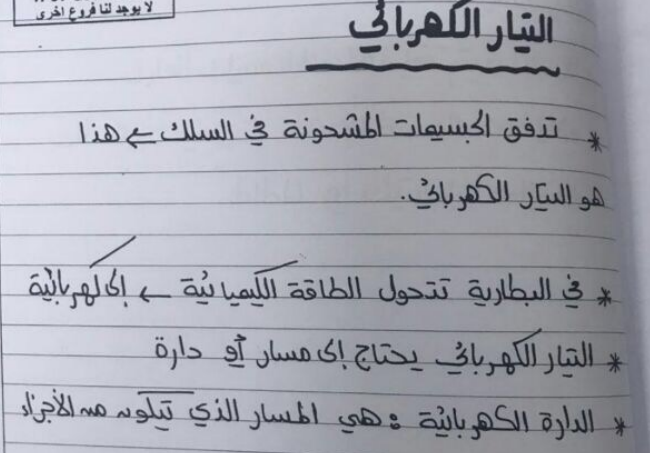 لا يوجد لنا فروع اخرى
التيار الكهربائي
* تدفق الجسيمات المشحونة في السلك ← هذا
هو التيار الكهربائي.
* في البطارية تتحول الطاقة الكيميائية ← إلى كهربائية
* التيار الكهربائي يحتاج إلى مسار أو دارة
* الدارة الكهربائية : هي المسار الذي تيكون من الأجزاء